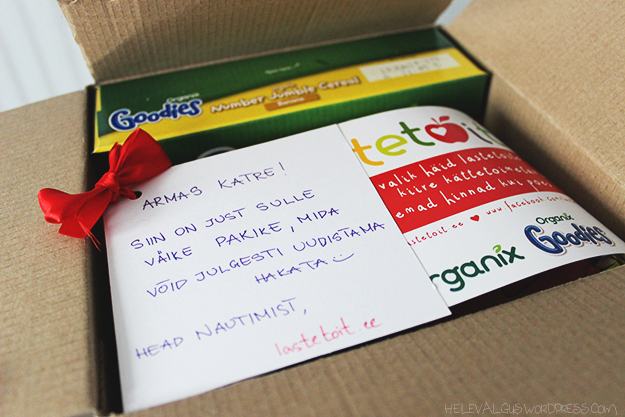 Organix
Goodies
Number Jumble Cereal
Banana
ARMAS KATRE!
SIIN ON JUST SULLE
VÄIKE PAKIKE, MIDA
VÕID JULGESTI UUDISTAMA
HAKATA
HEAD NAUTIMIST,
lastetoit.ee
valik häid lastetoi
kiire kättetoimet
emad hinnad kui poe
lastetoit.ee www.facebook.com/
Organix
Goodies
rganix
HELEVALGUS.WORDPRESS.COM